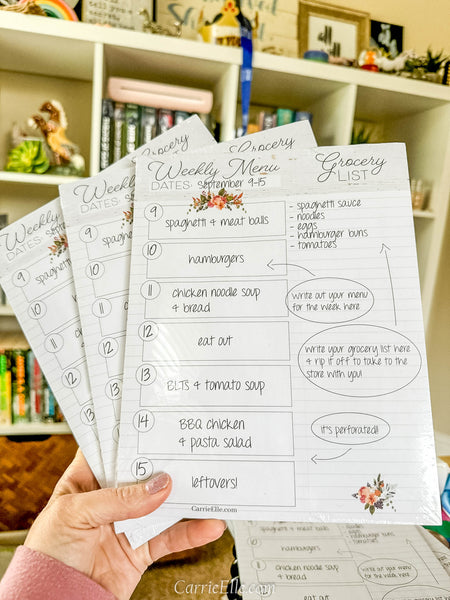 Weekly Menu
DATES: September 9-15
9
spaghetti & meat balls
10
hamburgers
11
chicken noodle soup
& bread
12
eat out
13
BLTS & tomato soup
14
BBQ chicken
& pasta salad
15
leftovers!
CarrieElle.com
Grocery
LIST
- spaghetti sauce
- noodles
- eggs
- hamburger buns
- tomatoes
write out your menu
for the week here
write your grocery list here
& rip it off to take to the
store with you!
it's perforated!!
Weekly
DATES:
9
spa
10
11
12
13
14
15
Grocery
Weekly
DATES: S
9
spaghe
10
11
12
13
Grocery
spaghetti & meat balls
hamburgers
chicken noodle soup
& bread
eat out
write out your menu
for the week here
write your grocery list here
CarrieElle.com